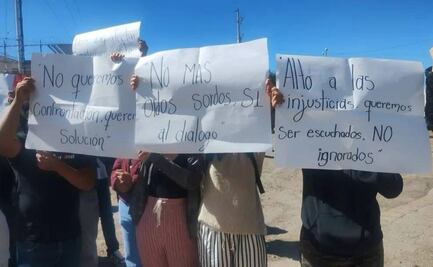 "No queremos
Confrontación, queremos
Solución"
NO MAS
Oídos Sordos, SI
al dialogo
"Alto a las
injusticias, queremos
Ser escuchados, NO
ignorados"